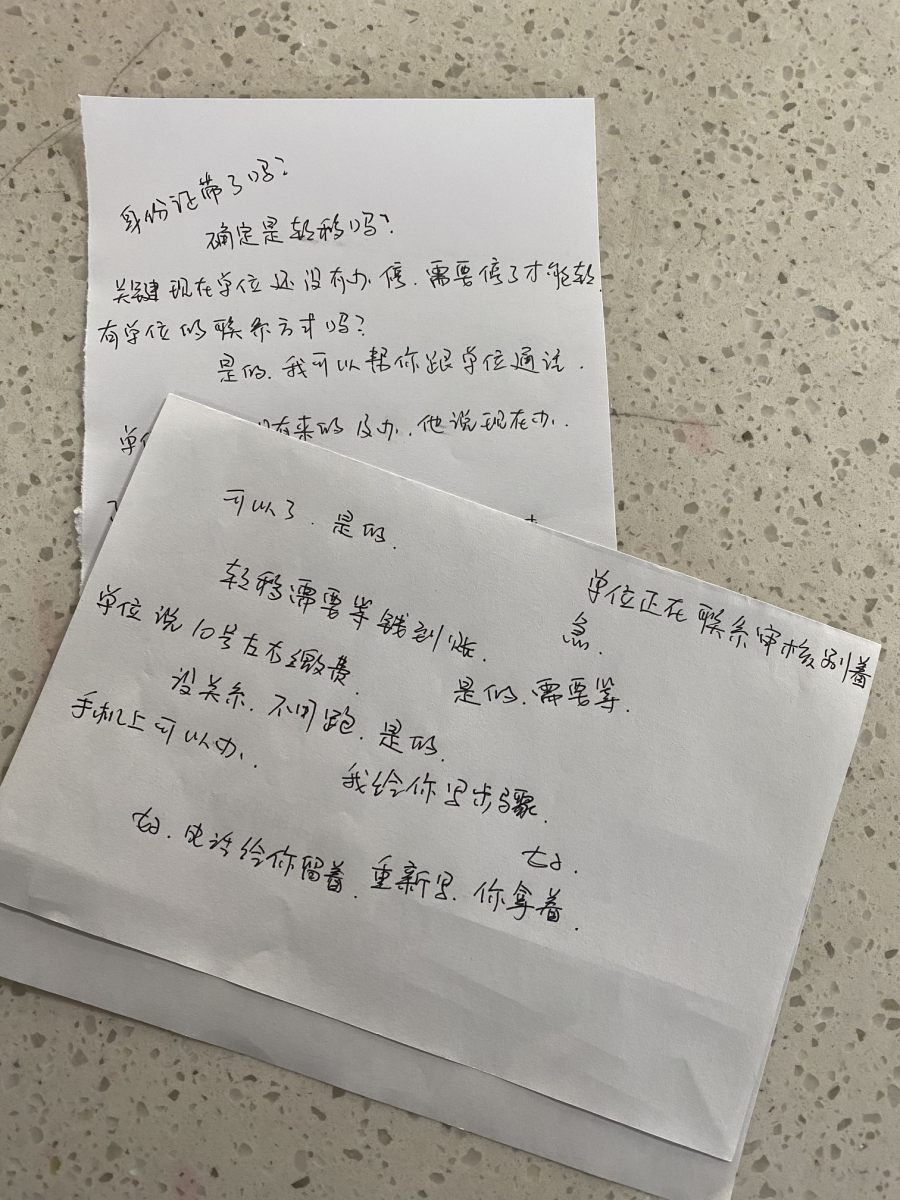 身份证带了吗?
确定是转移吗?
关键现在单位还没有办停.需要停了才能转.
有单位的联系方式吗?
是的.我可以帮你跟单位通话.
有来的及办.他说现在办.
可以了.是的.
单位正在联系审核别着
急.
转移需要等钱到账.
是的.需要等.
单位说10号左右缴费.
没关系.不用跑.是的.
手机上可以办.
我给你写步骤.
好.
好.电话给你留着.重新写.你拿着.